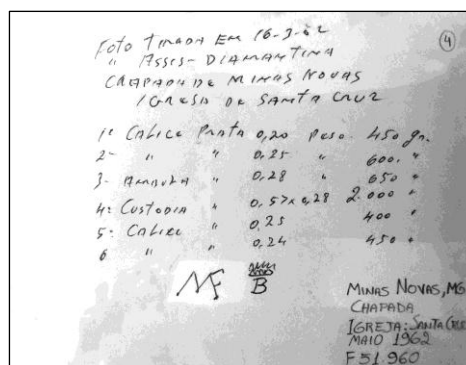 4
Foto tirada em 16-3-62
" Assis - Diamantina
Chapada de Minas Novas
Igreja de Santa Cruz
1º Calice Prata 0,20 Peso. 450 gr.
2- " " 0,25 " 600. "
3- Ambula " 0,28 " 650 "
4= Custodia " 0,57x0,28 2.000 "
5- Calice " 0,25 400 "
6 " " 0,24 450 "
B
MINAS NOVAS, MG
CHAPADA
IGREJA: SANTA CRUZ
MAIO 1962
F 51.960